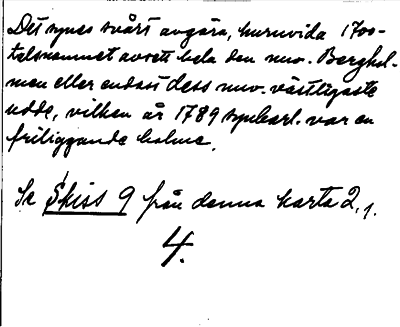 Det synes svårt avgöra, huruvida 1700-
talsnamnet avsett hela den nuv. Berghol-
men eller endast dess nuv. västligaste
udde, vilken år 1789 synbarl. var en
friliggande holme.
Se Skiss 9 från denna karta 2, 1.
4.